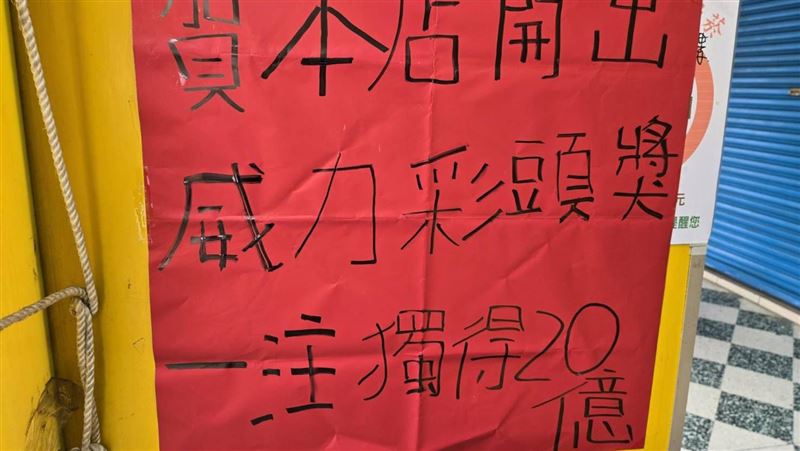 賀本店開出
威力彩頭獎
一注獨得20
億
元
提醒您